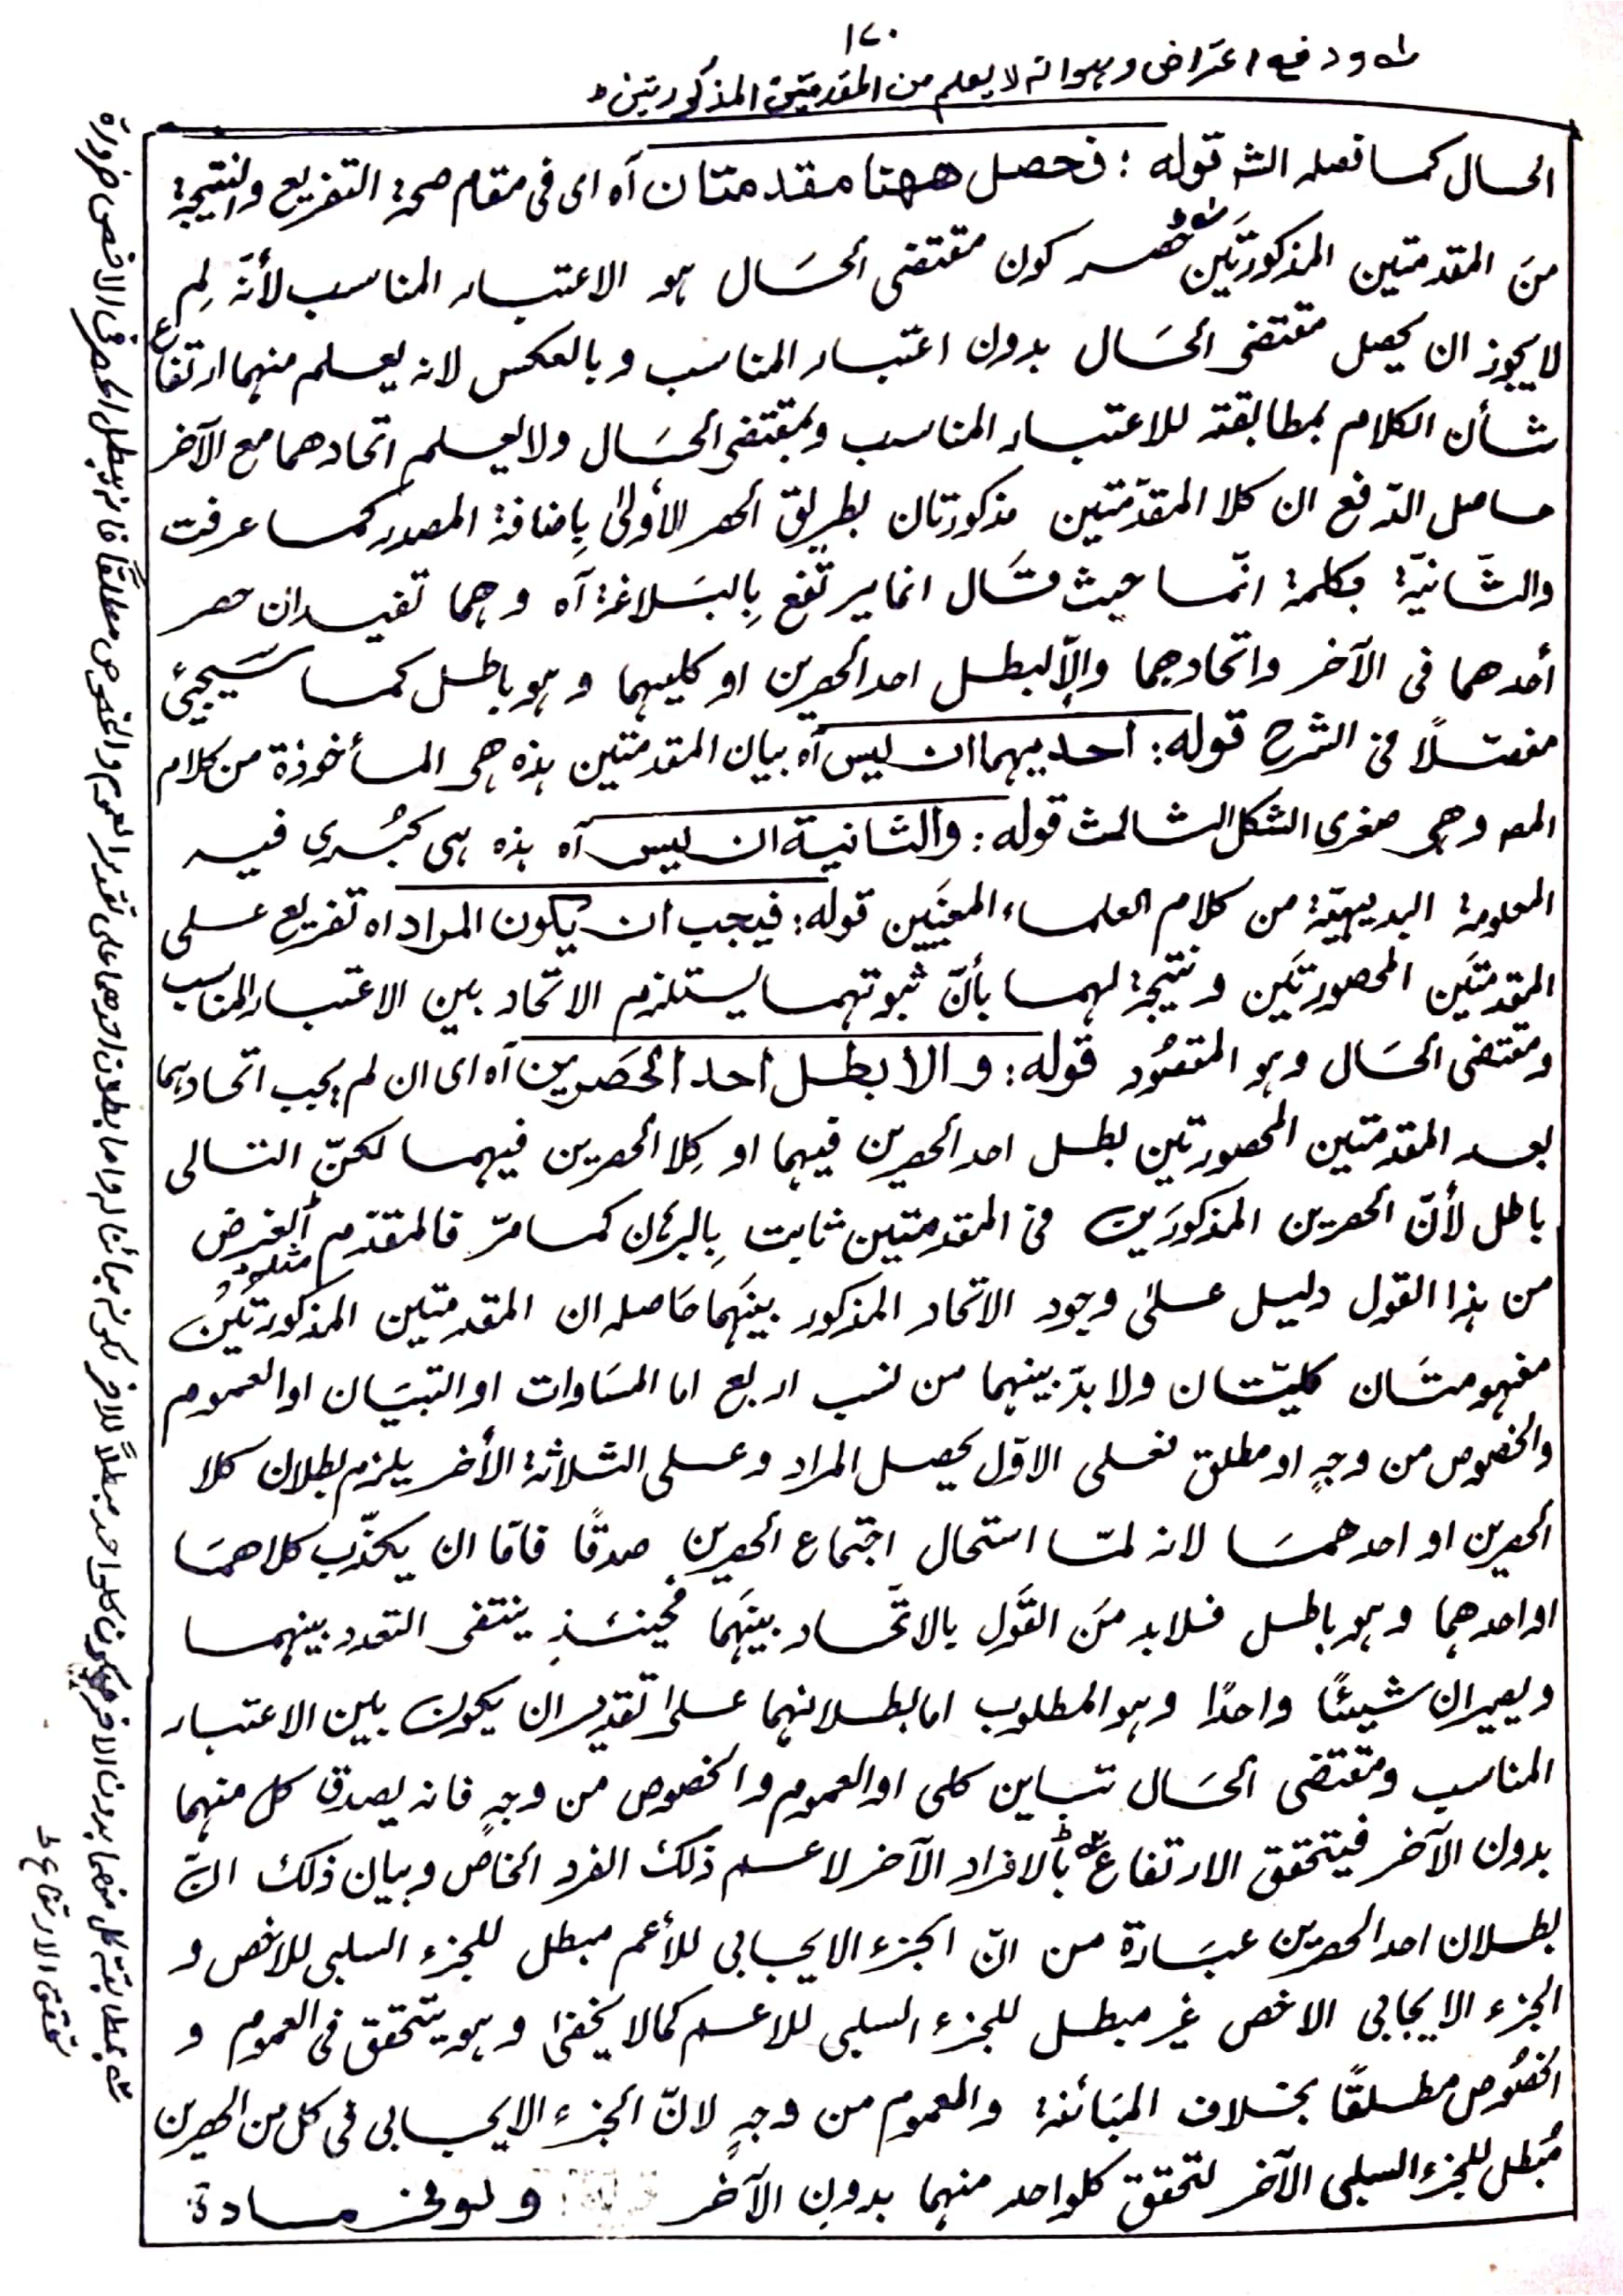 ١٧٠
ـه و دفع اعتراض وهو انه لا يعلم من المقدمتين المذكورتين
الحال كما فصله الشـ قوله : فحصل ههنا مقدمتان آه اى فى مقام صحة التفريع والنتيجة
من المقدمتين المذكورتين حصر كون مقتضى الحال هو الاعتبار المناسب لأنه لم
لا يجوز ان يحصل مقتضى الحال بدون اعتبار المناسب وبالعكس لانه يعلم منهما ارتفاع
شأن الكلام بمطابقته للاعتبار المناسب وبمقتضى الحال ولا يعلم اتحادهما مع الآخر
حاصل الدفع ان كلا المقدّمتين مذكورتان بطريق الحصر الأولىٰ بإضافة المصدر كما عرفت
والثانيّة بكلمة انّما حيث قال انما يرتفع بالبلاغة آه وهما تفيدان حصر
أحدهما فى الآخر واتحادهما والاّ لبطل احد الحصرين او كليهما وهو باطل كما سيجيئ
مفصّلاً فى الشرح قوله : احديهما ان ليس آه بيان المقدمتين هذه هى المأخوذة من كلام
المصـ وهى صغرى الشكل الثالث قوله : والثانية ان ليس آه هذه هى كبرى فيه
المعلومة البديهيّة من كلام العلماء المعنيين قوله : فيجب ان يكون المراد اه تفريع على
المقدمتين المحصورتين ونتيجة لهما بأنّ ثبوتهما يستلزم الاتحاد بين الاعتبار المناسب
ومقتضى الحال وهو المقصود قوله : والا بطل احد الحصرين آه اى ان لم يجب اتحادهما
بعد المقدمتين المحصورتين بطل احد الحصرين فيهما او كلا الحصرين فيهما لكنّ التالى
باطل لأنّ الحصرين المذكورين فى المقدمتين ثابت بالبرهان كما مرّ فالمقدّم مثله الغرض
من هذا القول دليل علىٰ وجود الاتحاد المذكور بينهما حاصله ان المقدمتين المذكورتين
مفهومتان كليّتان ولا بدّ بينهما من نسب اربع اما المساوات او التبيان او العموم
والخصوص من وجهٍ او مطلق فعلى الاوّل يحصل المراد وعلى الثلاثة الأخر يلزم بطلان كلا
الحصرين او احدهما لانه لمّا استحال اجتماع الحصرين صدقًا فامّا ان يكذّب كلاهما
او احدهما وهو باطل فلا بد من القول بالاتّحاد بينهما فحينئذٍ ينتفى التعدد بينهما
ويصيران شيئًا واحدًا وهو المطلوب اما بطلانهما علىٰ تقدير ان يكون بين الاعتبار
المناسب ومقتضى الحال تباين كلى او العموم والخصوص من وجهٍ فانه يصدق كل منهما
بدون الآخر فيتحقق الارتفاع بالافراد الآخر لا عـم ذلك الفرد الخاص وبيان ذلك انّ
بطلان احد الحصرين عبارة من انّ الجزء الايجابى للأعم مبطل للجزء السلبى للاخص و
الجزء الايجابى الاخص غير مبطل للجزء السلبى للاعم كما لا يخفىٰ وهو يتحقق فى العموم و
الخصوص مطلقًا بخلاف المبائنة والعموم من وجهٍ لانّ الجزء الايجابى فى كل من الحصرين
مُبطل للجزء السلبى الآخر لتحقق كلواحد منهما بدون الآخر ولو فى مادة
ـه بمطابقة كل منهما بدون الآخر فيكون كلواحد مبطلاً للآخر لكونه مبائنا له واما بطلان احدهما على تقدير العموم والخصوص مطلقًا فانه يبطل الحصر فى الاخص ضرورة
تحقق الارتفاع